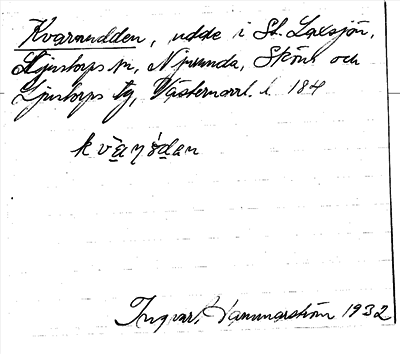 Kvarnudden, udde i St. Laxsjön,
Ljustorps sn, Njurunda, Sköns och
Ljustorps tg, Västernorrl. l. 184
kvà̱ṇó̱dan
Ingvar Hammarström 1932